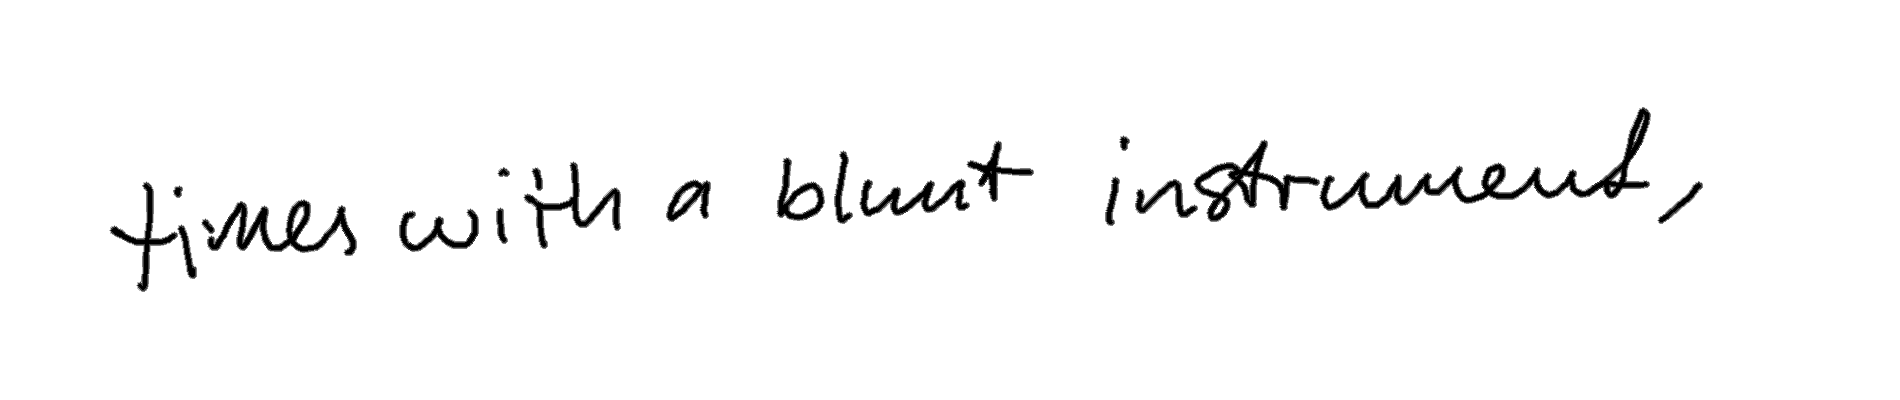 times with a blunt instrument,